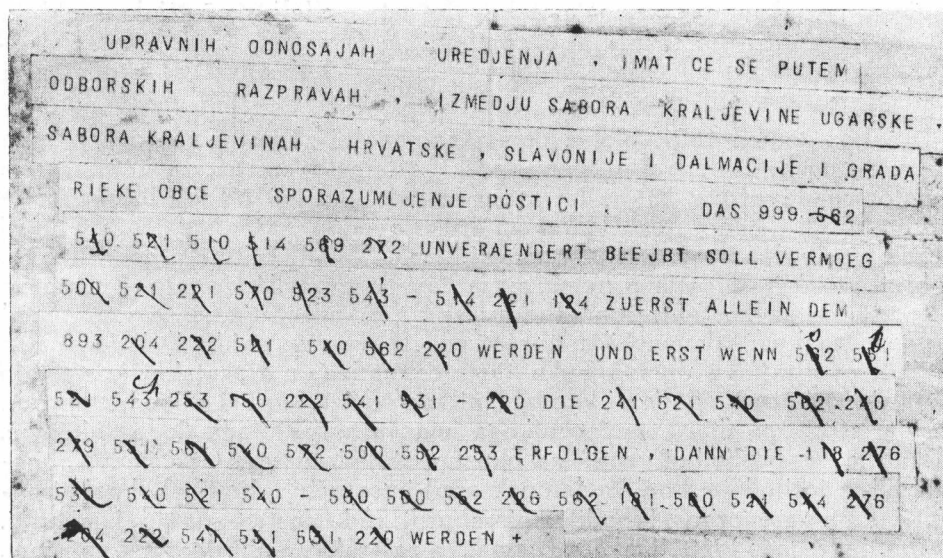 UPRAVNIH ODNOSAJAH UREDJENJA , IMAT CE SE PUTEM
ODBORSKIH RAZPRAVAH , IZMEDJU SABORA KRALJEVINE UGARSKE ,
SABORA KRALJEVINAH HRVATSKE , SLAVONIJE I DALMACIJE I GRADA
RIEKE OBCE SPORAZUMLJENJE POSTICI . DAS 999 562
540 521 510 514 569 272 UNVERAENDERT BLEJBT SOLL VERMOEG
500 521 221 570 523 543 - 514 221 124 ZUERST ALLEIN DEM
s
893 204 222 521 540 562 220 WERDEN UND ERST WENN 562 531
ch
521 543 253 150 222 541 531 - 220 DIE 241 521 540 562 240
279 551 561 540 572 500 552 253 ERFOLGEN , DANN DIE 118 276
530 540 521 540 - 560 500 562 226 562 181 560 521 544 276
204 222 541 531 531 220 WERDEN +